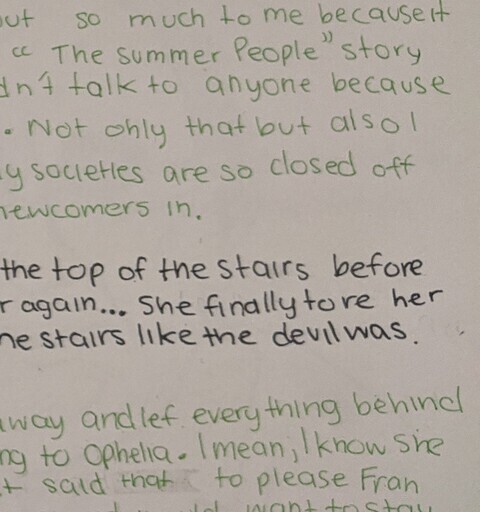 out so much to me because it
"The summer People" story
dn't talk to anyone because
. Not only that but also I
y societies are so closed off
newcomers in.
the top of the stairs before
r again... She finally tore her
he stairs like the devil was.
away and lef everything behind
ng to Ophelia. I mean, I know she
t said that to please Fran
want to stay